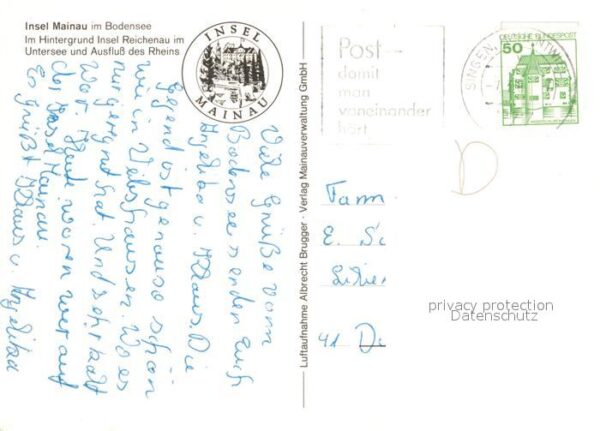 Insel Mainau im Bodensee
Im Hintergrund Insel Reichenau im
Untersee und Ausfluß des Rheins
INSEL
MAINAU
Viele Grüße vom
Bodensee senden Euch
Angelika u. Klaus. Die
Gegend ist genauso schön
wie in Wilshausen. Wo es
nur geregnet hat. Und sehr kalt
war. Heute waren wir auf
der Insel Mainau.
Es grüßt Klaus u. Angelika
Luftaufnahme Albrecht Brugger · Verlag Mainauverwaltung GmbH
Post-
damit
man
voneinander
hört
SINGEN
DEUTSCHE BUNDESPOST
50
Fam
E. Sc
41 Du
privacy protection
Datenschutz